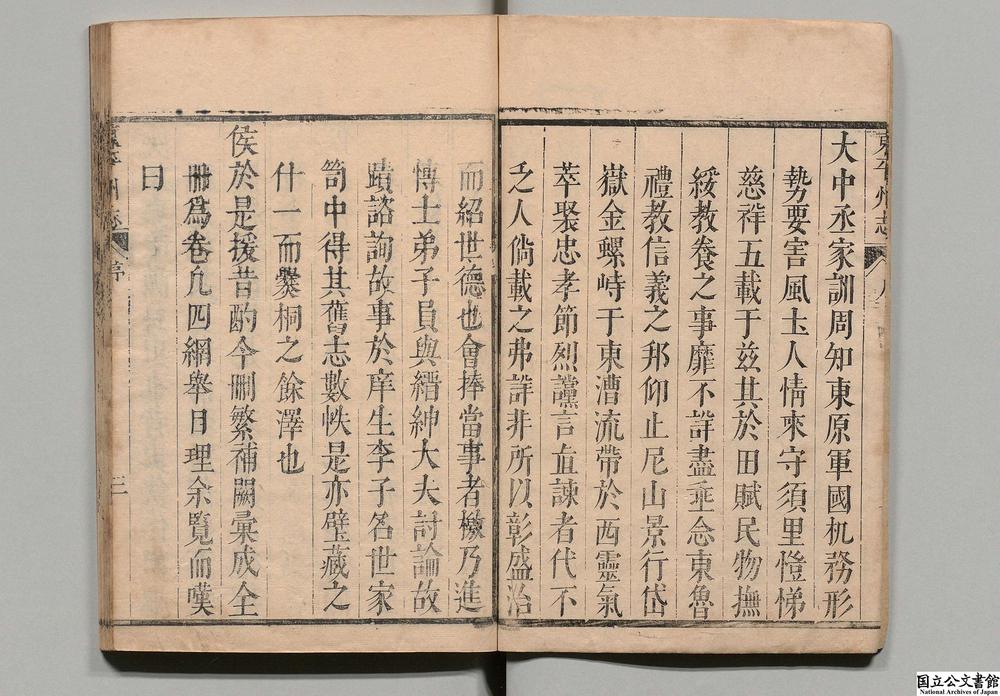 大中丞家訓周知東原軍國机務形
勢要害風土人情來守須里愷悌
慈祥五載于兹其於田賦民物撫
綏教養之事靡不詳盡乖念東魯
禮教信義之邦仰止尼山景行岱
嶽金螺峙于東漕流帶於西靈氣
萃聚忠孝節烈讜言直諫者代不
乏人倘載之弗詳非所以彰盛治
而紹世德也會捧當事者檄乃進
博士弟子員與縉紳大夫討論故
蹟諮詢故事於庠生李子名世家
笥中得其舊志數帙是亦璧藏之
什一而爨桐之餘澤也
侯於是援昔酌今刪繁補闕彙成全
冊爲卷凡四綱舉目理余覽而嘆
曰
東平州志
序
三
国立公文書館
National Archives of Japan